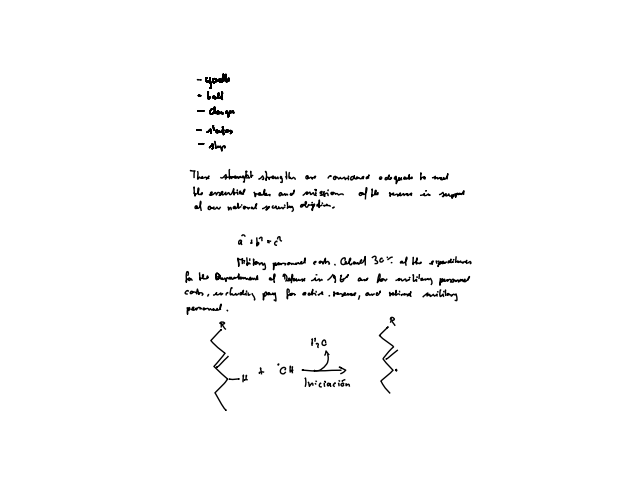 - ball
- Change
- states
- stop
These strength strengths are considered adequate to meet
the essential roles and missions of the reserve in support
of our national security objectives.
a^n + b^n = c^n
Military personnel costs. About 30% of the expenditures
for the Department of Defense in are for military personnel
costs, including pay for active, reserve, and retired military
personnel.
R
H
+ •OH
H2O
Iniciación
R